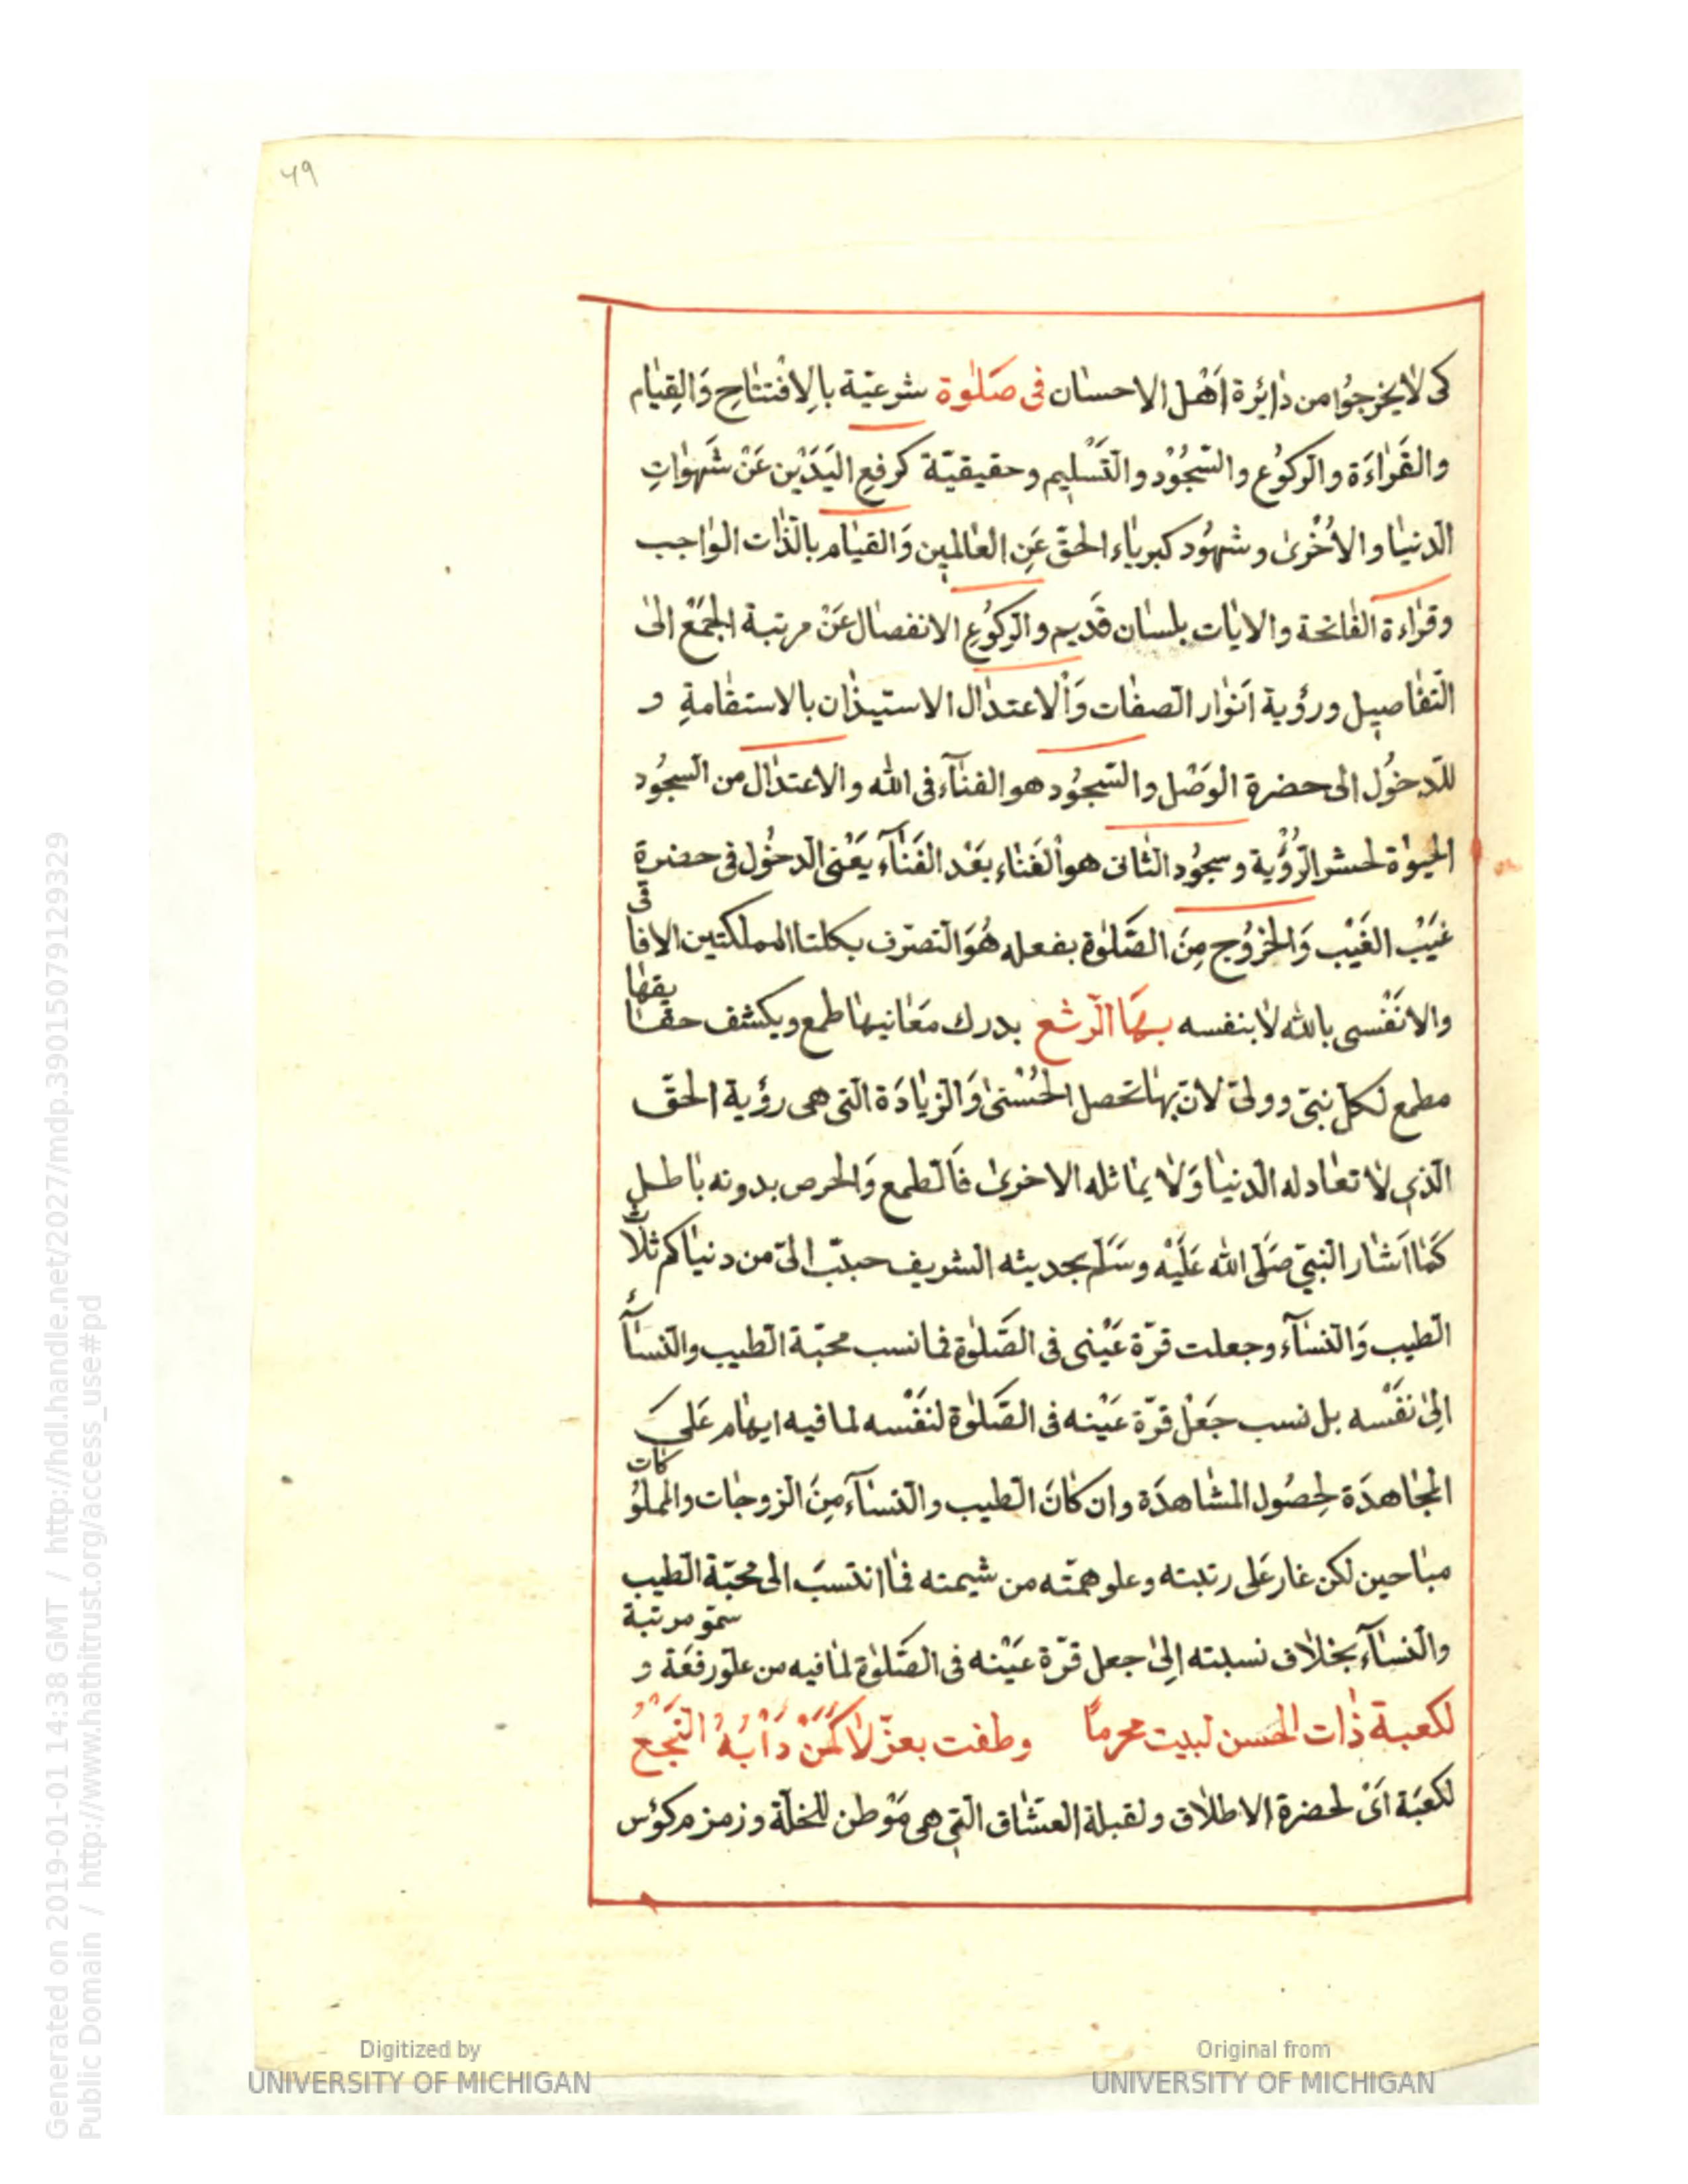 ٦٩
كى لا يخرجوا من دائرة اهل الاحسان فى صلوة شرعيّة بالافتتاح والقيام
والقراءة والركوع والسّجود والتّسليم وحقيقيّة كرفع اليدين عن شهوات
الدنيا والاخرى وشهود كبرياء الحقّ عن العالمين والقيام بالذّات الواجب
وقراءة الفاتحة والايات بلسان قديم والركوع الانفصال عن مرتبة الجمع الى
التّفاصيل ورؤية انوار الصفات والاعتدال الاستيذان بالاستقامة و
للدّخول الى حضرة الوصل والسّجود هو الفناء فى الله والاعتدال من السجود
الحيوة لحشر الرّؤية وسجود الثانى هو الفناء بعد الفناء يعنى الدخول فى حضرة
غيب الغيب والخروج من الصّلوة بفعله هو التصرّف بكلتا المملكتين الافاقى
والانفسى بالله لا بنفسه بها الرشع بدرك معانيها طمع ويكشف حقايقها
مطمع لكلّ نبىّ وولىّ لانّ بها تحصل الحسنى والزيادة التى هى رؤية الحقّ
الّذى لا تعادله الدّنيا ولا يماثله الاخرى فالطمع والحرص بدونه باطل
كما اشار النبىّ صلّى الله عليه وسلّم بحديثه الشريف حبّب الىّ من دنياكم ثلاث
الطيب والنساء وجعلت قرّة عينى فى الصّلوة فما نسب محبّة الطيب والنساء
الى نفسه بل نسب جعل قرّة عينه فى الصّلوة لنفسه لما فيه ايهام على
المجاهدة لحصول المشاهدة وان كان الطيب والنساء من الزوجات والمملوكات
مباحين لكن غار على رتبته وعلو همّته من شيمته فما انتسب الى محبّة الطيب
والنساء بخلاف نسبته الى جعل قرّة عينه فى الصّلوة لما فيه من علوّ رفعة و سموّ مرتبة
لكعبة ذات الحسن لبيت محرمًا وطفت بعزّ لا لمن دأبه النجع
لكعبة اى لحضرة الاطلاق ولقبلة العشّاق التى هى موطن للخلّة وزمزم كؤس
Digitized by
UNIVERSITY OF MICHIGAN
Original from
UNIVERSITY OF MICHIGAN
Generated on 2019-01-01 14:38 GMT / http://hdl.handle.net/2027/mdp.39015079129329
Public Domain / http://www.hathitrust.org/access_use#pd